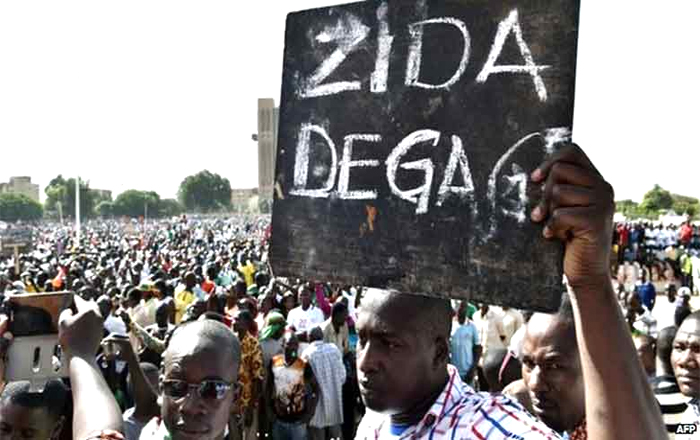 ZIDA
DEGAG
AFP